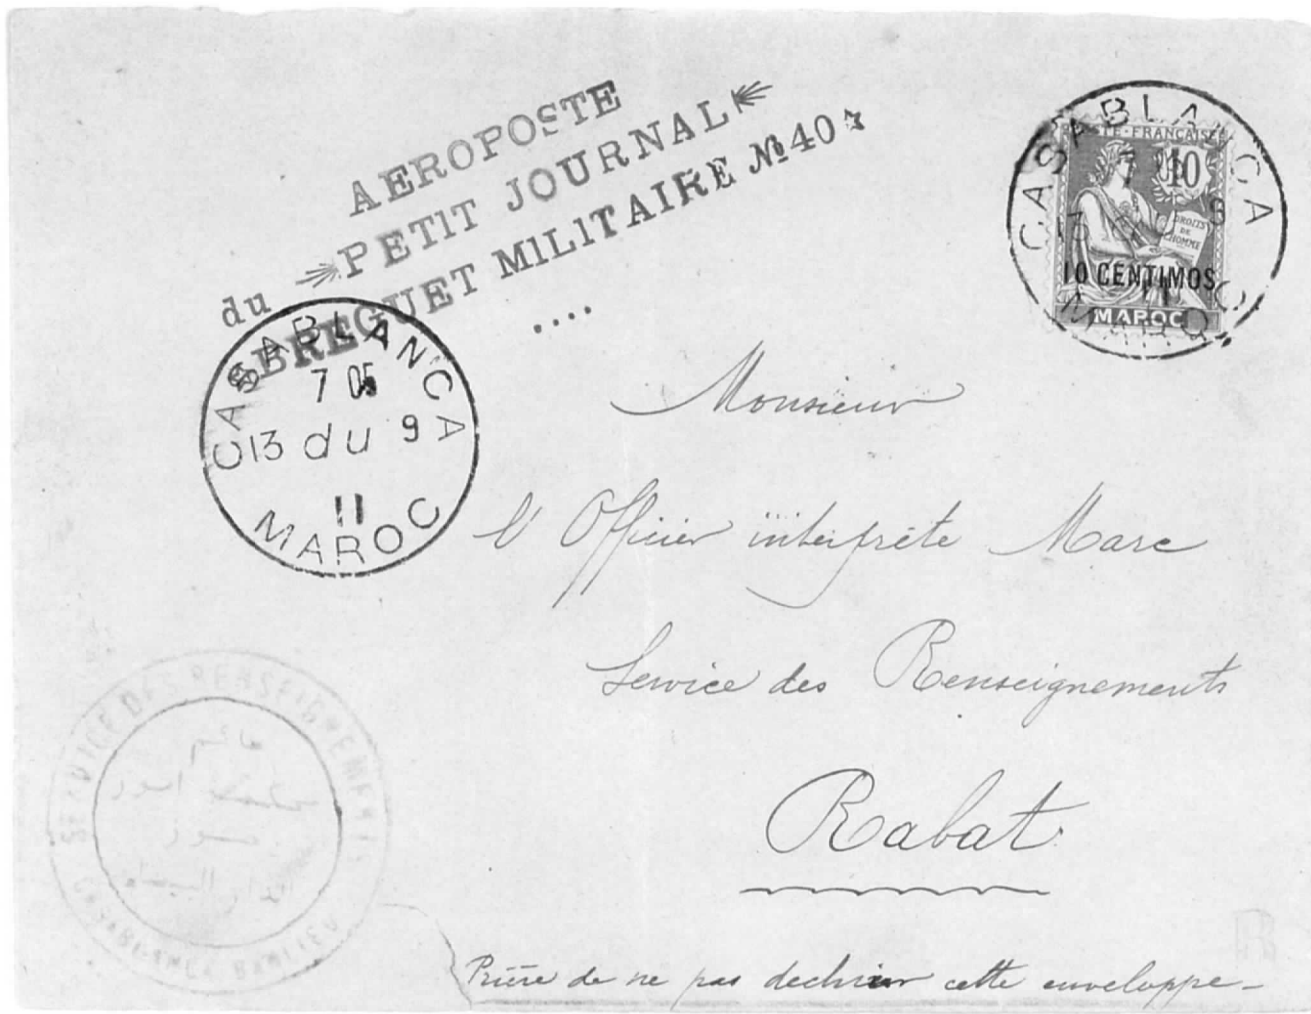 AEROPOSTE
du PETIT JOURNAL
BREGUET MILITAIRE No 40
....
CASABLANCA
7 05
13 du 9
11
MAROC
CASABLANCA
POSTE FRANÇAISE
10
DROITS
DE
L'HOMME
10 CENTIMOS
MAROC
11
MAROC
Monsieur
l'Officier interprète Marc
Service des Renseignements
Rabat
SERVICE DES RENSEIGNEMENTS
CASABLANCA BANLIEUE
Prière de ne pas dechirer cette enveloppe-